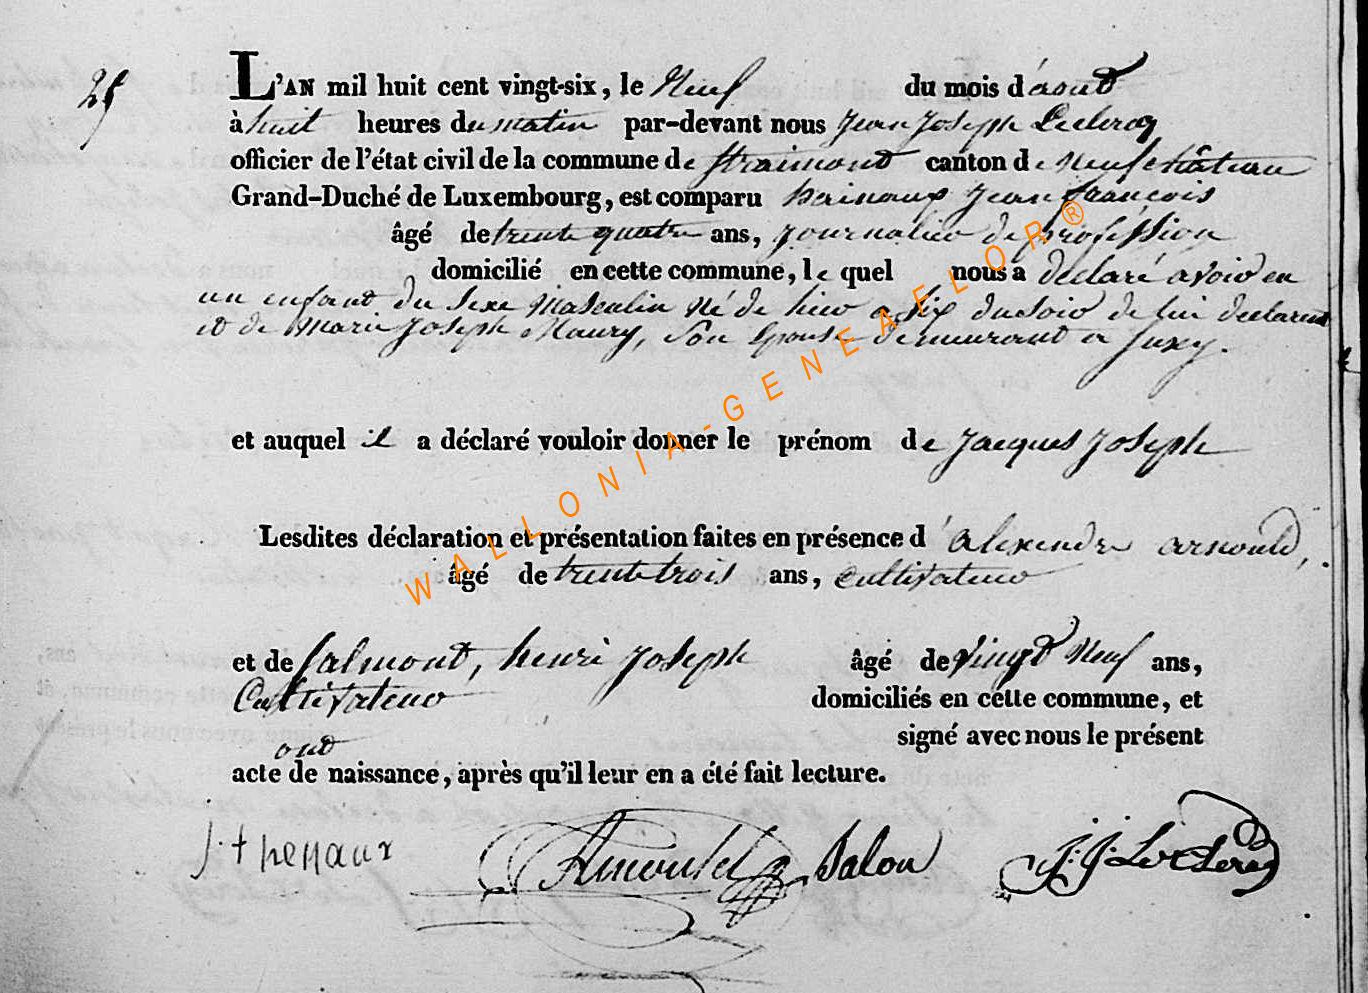 25
L'AN mil huit cent vingt-six, le Neuf du mois d'aout
à huit heures du matin par-devant nous Jean Joseph Leclercq
officier de l'état civil de la commune de Straimont canton de Neufchâteau
Grand-Duché de Luxembourg, est comparu hainaux Jean françois
âgé de trente quatre ans, Journalier de profession
domicilié en cette commune, le quel nous a declaré avoir eu
un enfant du sexe Masculin Né de hier a six du soir de lui declarant
et de Marie Joseph Maury, Son Epouse demeurant a Suxy.
et auquel il a déclaré vouloir donner le prénom de Jacques Joseph
Lesdites déclaration et présentation faites en présence d'alexendre arnould,
âgé de trente trois ans, Cultivateur
et de Salmont, henri Joseph âgé de vingt Neuf ans,
Cultivateur domiciliés en cette commune, et
ont signé avec nous le présent
acte de naissance, après qu'il leur en a été fait lecture.
Arnould Salon J. J. Leclercq
WALLONIA-GENEAFLOR®